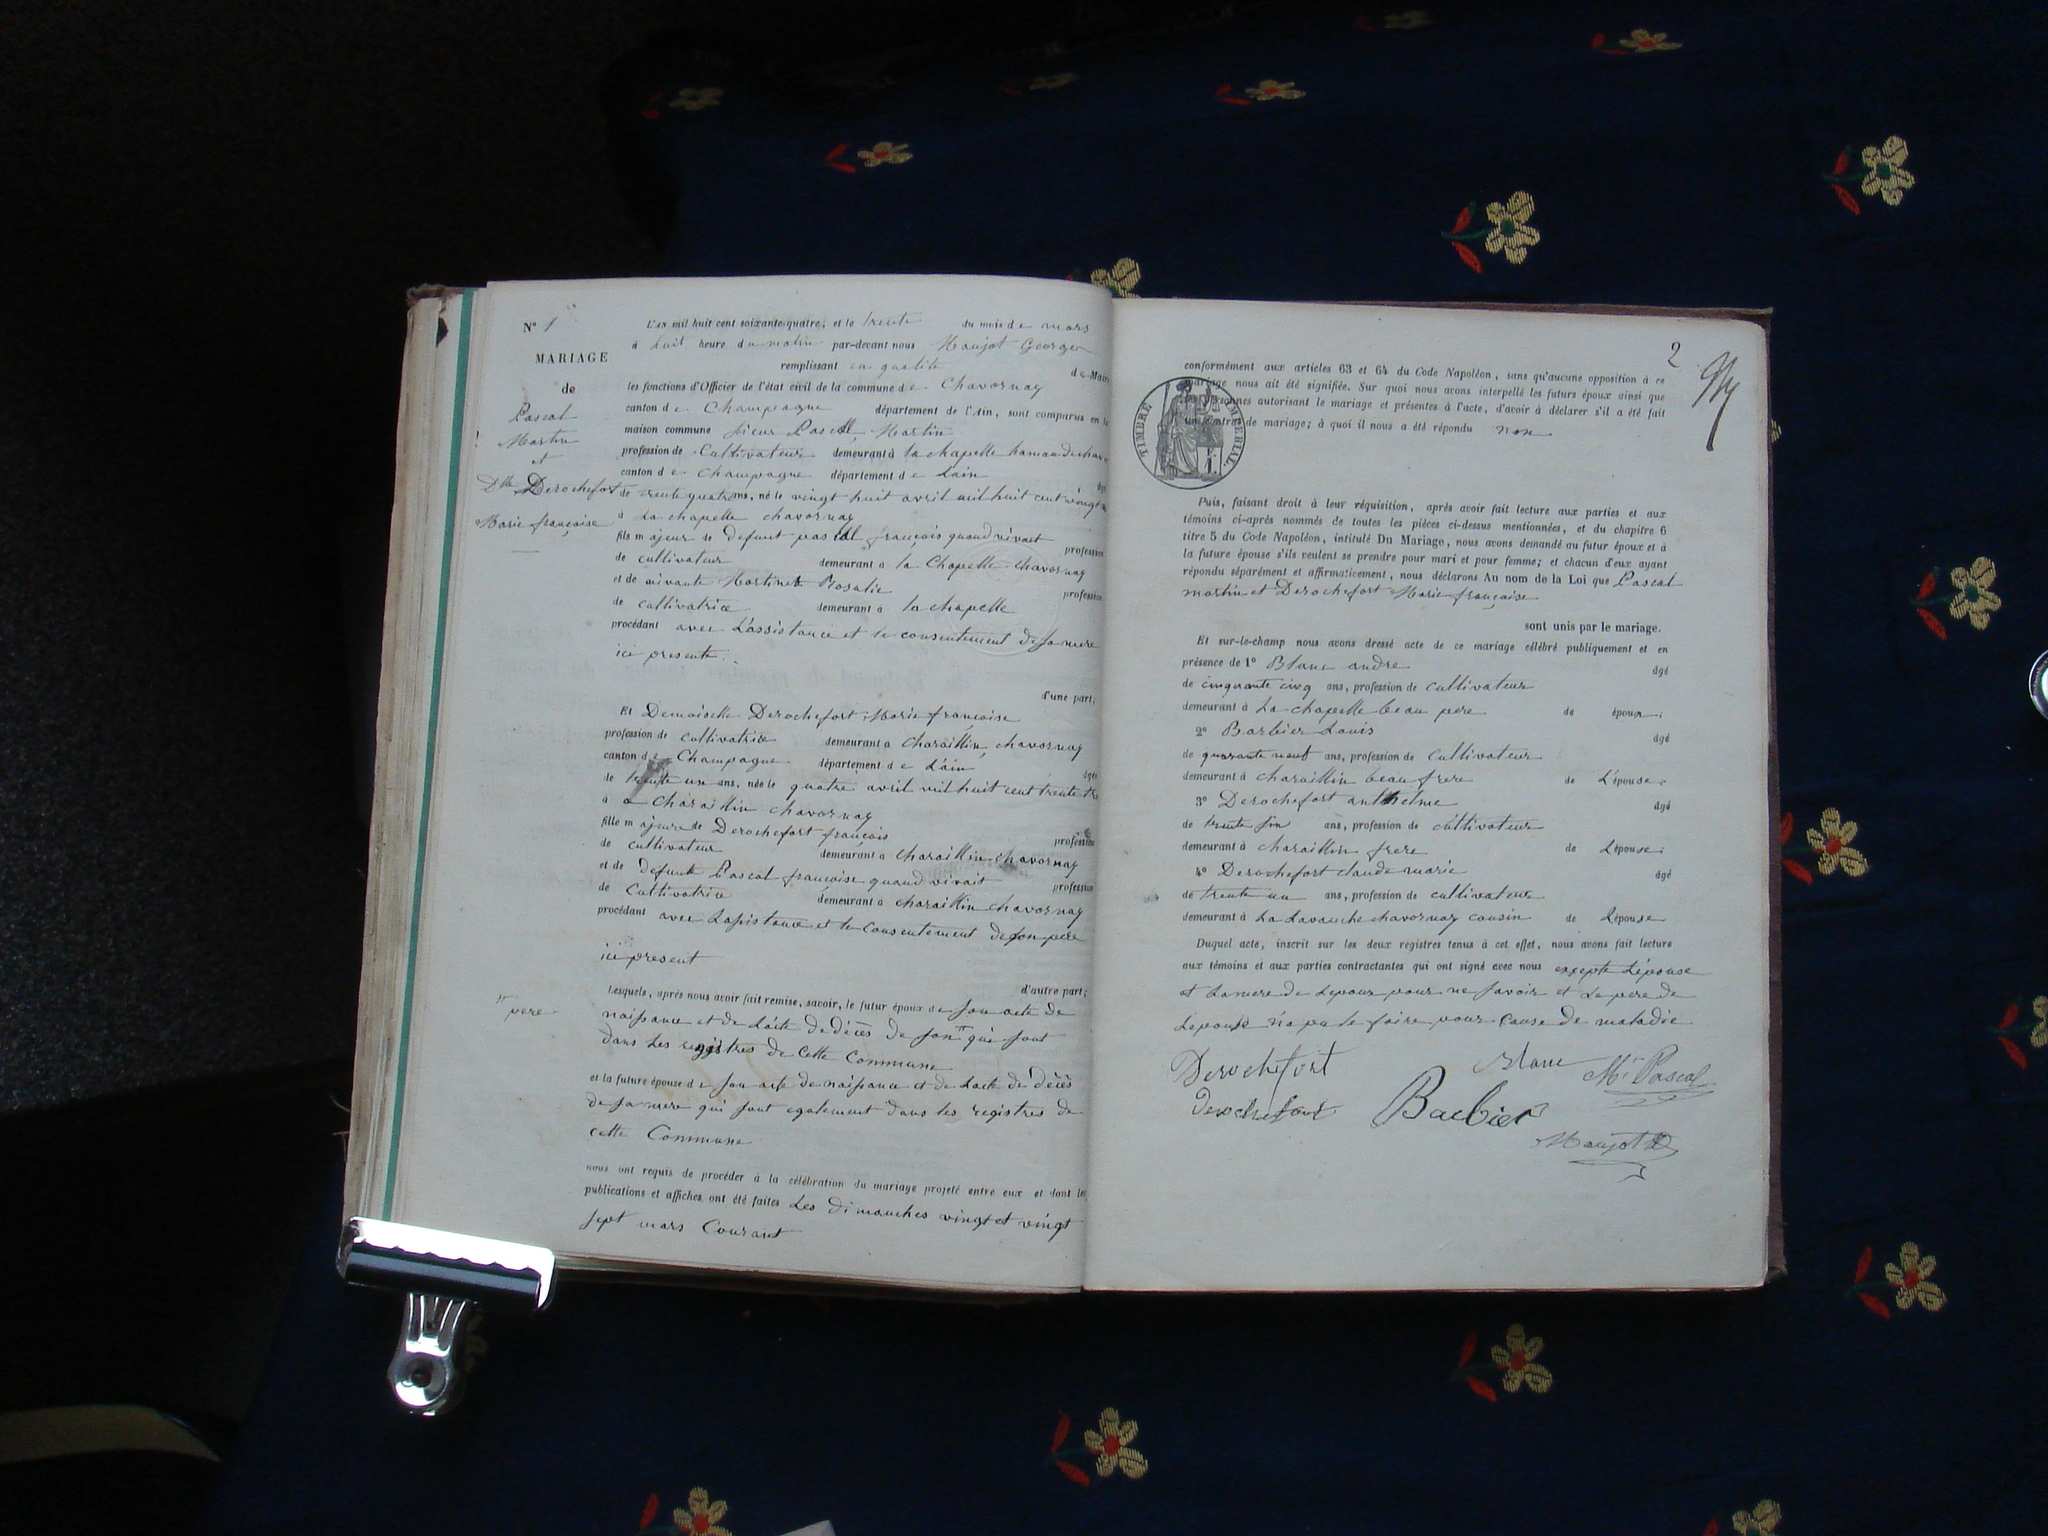 N° 1
MARIAGE
de
Pascal
Martin
et
Dlle Derochefort
Marie françoise
L'AN mil huit cent soixante-quatre, et le trente du mois de mars
à huit heure du matin par-devant nous Maujot George
remplissant en qualité de Maire
les fonctions d'Officier de l'état civil de la commune de Chavornay
canton de Champagne département de l'Ain, sont comparus en la
maison commune sieur Pascal Martin
profession de Cultivateur demeurant à la chapelle hameau de
canton de Champagne département de Lain âgé
de trente quatre ans, né le vingt huit avril mil huit cent
à La chapelle chavornay
fils majeur de defunt pascal françois quand vivait profession
de cultivateur demeurant à la Chapelle chavornay
et de vivante Martinet Rosalie profession
de cultivatrice demeurant à la chapelle
procédant avec L'assistance et le consentement de sa mere
ici presente
d'une part;
Et Demoiselle Derochefort Marie françoise
profession de cultivatrice demeurant à charaillin chavornay
canton de Champagne département de Lain âgée
de trente un ans, née le quatre avril mil huit cent trente
à a Charaillin chavornay
fille majeure de Derochefort françois profession
de cultivateur demeurant à charaillin chavornay
et de defunte Pascal françoise quand vivait profession
de Cultivatrice demeurant à charaillin chavornay
procédant avec Lassistance et le Consentement de son pere
ici present
d'autre part;
Lesquels, après nous avoir fait remise, savoir, le futur époux de son acte de
naissance et de L'acte de décès de son qui sont
pere
dans Les registres de cette Commune
et la future épouse de son acte de naissance et de Lacte de décès
de sa mere qui sont egalement dans les registres de
cette Commune
nous ont requis de procéder à la célébration du mariage projeté entre eux et dont les
publications et affiches ont été faites Les dimanches vingt et vingt
sept mars Courant
2
conformément aux articles 63 et 64 du Code Napoléon, sans qu'aucune opposition à ce
mariage nous ait été signifiée. Sur quoi nous avons interpellé les futurs époux ainsi que
les personnes autorisant le mariage et présentes à l'acte, d'avoir à déclarer s'il a été fait
un contrat de mariage; à quoi il nous a été répondu non
TIMBRE IMPERIAL
Puis, faisant droit à leur réquisition, après avoir fait lecture aux parties et aux
témoins ci-après nommés de toutes les pièces ci-dessus mentionnées, et du chapitre 6
titre 5 du Code Napoléon, intitulé Du Mariage, nous avons demandé au futur époux et à
la future épouse s'ils veulent se prendre pour mari et pour femme; et chacun d'eux ayant
répondu séparément et affirmativement, nous déclarons Au nom de la Loi que Pascal
martin et Derochefort Marie françoise
sont unis par le mariage.
Et sur-le-champ nous avons dressé acte de ce mariage célébré publiquement et en
présence de 1° Blanc andre âgé
de cinquante cinq ans, profession de cultivateur
demeurant à La chapelle beau pere de époux;
2° Barbier Louis âgé
de quarante neuf ans, profession de cultivateur
demeurant à charaillin beau frere de L'épouse;
3° Derochefort anthelme âgé
de trente ans, profession de cultivateur
demeurant à charaillin frere de Lépouse;
4° Derochefort claude marie âgé
de trente un ans, profession de cultivateur
demeurant à La chavornay cousin de Lépouse
Duquel acte, inscrit sur les deux registres tenus à cet effet, nous avons fait lecture
aux témoins et aux parties contractantes qui ont signé avec nous excepte Lépouse
et La mere de Lepoux pour ne savoir et Le pere de
Lepouse n'a pu le faire pour Cause de maladie
Derochefort Blanc M. Pascal
Derochefort Barbier
Maujot